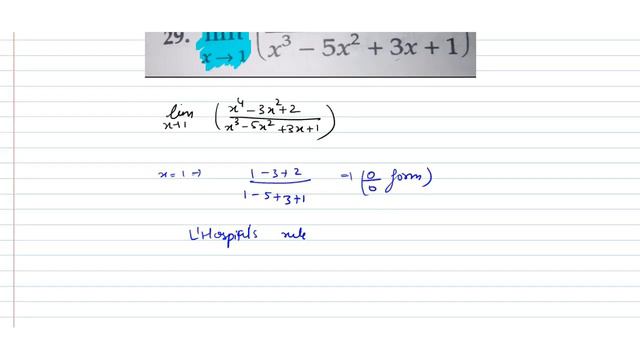 29. lim x→1 ( x³ − 5x² + 3x + 1 )
lim x→1 ( x⁴ − 3x² + 2 / x³ − 5x² + 3x + 1 )
x = 1 → 1 − 3 + 2 / 1 − 5 + 3 + 1 → ( 0/0 form )
L'Hospital's rule